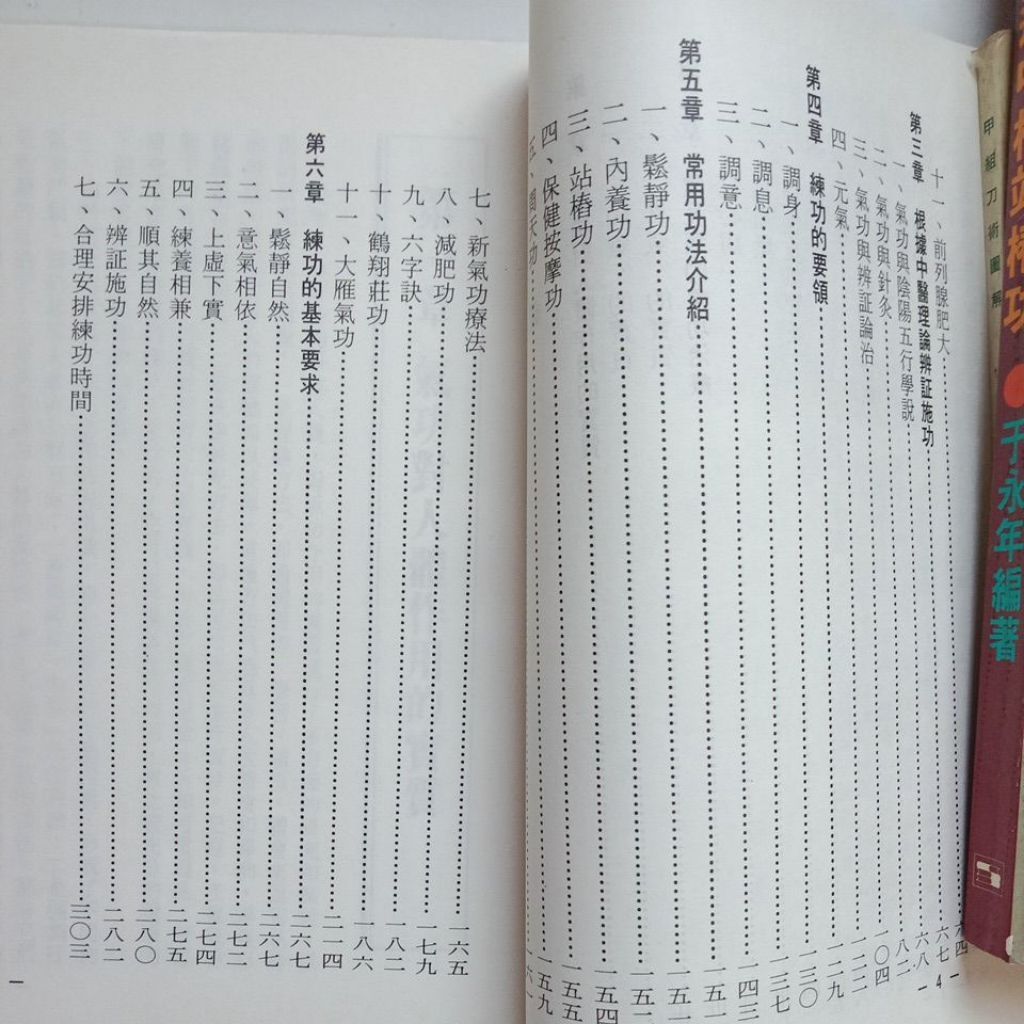 十一、前列腺肥大……六四
第三章 根據中醫理論辨証施功……六七
一、氣功與陰陽五行學說……六八
二、氣功與針灸……八二
三、氣功與辨証論治……一〇四
四、元氣……一二二
第四章 練功的要領……一二九
一、調身……一三〇
二、調息……一三七
三、調意……一四三
第五章 常用功法介紹……一五一
一、鬆靜功……一五一
二、內養功……一五二
三、站樁功……一五四
四、保健按摩功……一五五
五、周天功……一五九
- 4 -
七、新氣功療法……一六五
八、減肥功……一七九
九、六字訣……一八二
十、鶴翔莊功……一八六
十一、大雁氣功……二一四
第六章 練功的基本要求……二六七
一、鬆靜自然……二六七
二、意氣相依……二七二
三、上虛下實……二七四
四、練養相兼……二七五
五、順其自然……二八〇
六、辨証施功……二八二
七、合理安排練功時間……三〇三
甲組刀術圖解
站樁功●于永年編著